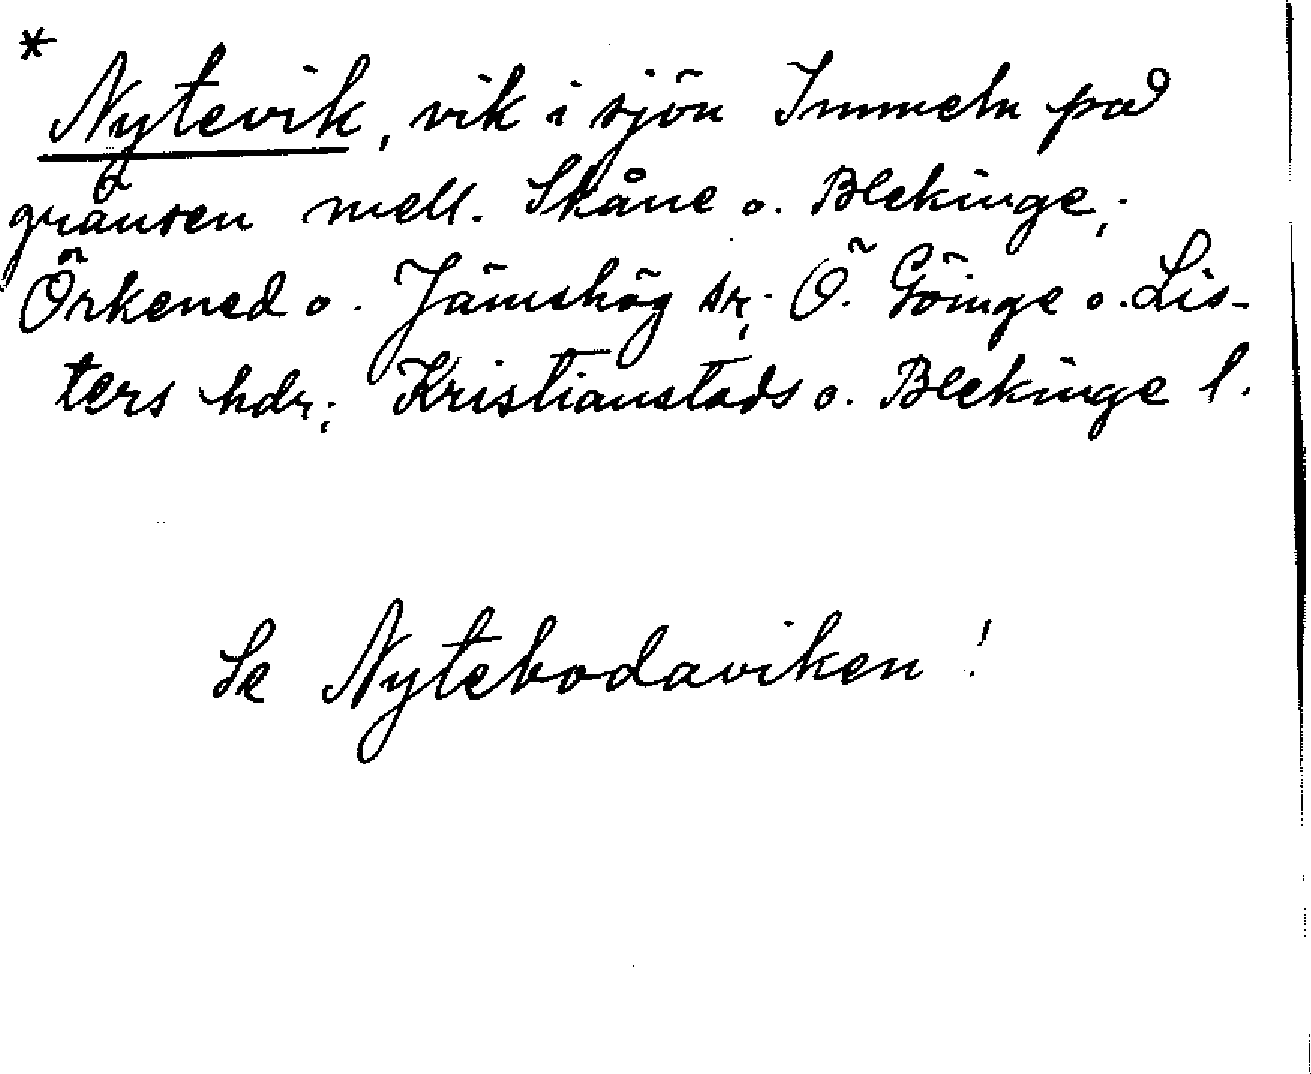 *
Nytevik, vik i sjön Immeln på
gränsen mell. Skåne o. Blekinge;
Örkened o. Jämshög sr; Ö. Göinge o. Lis-
ters hdr; Kristianstads o. Blekinge l.
Se Nytebodaviken!